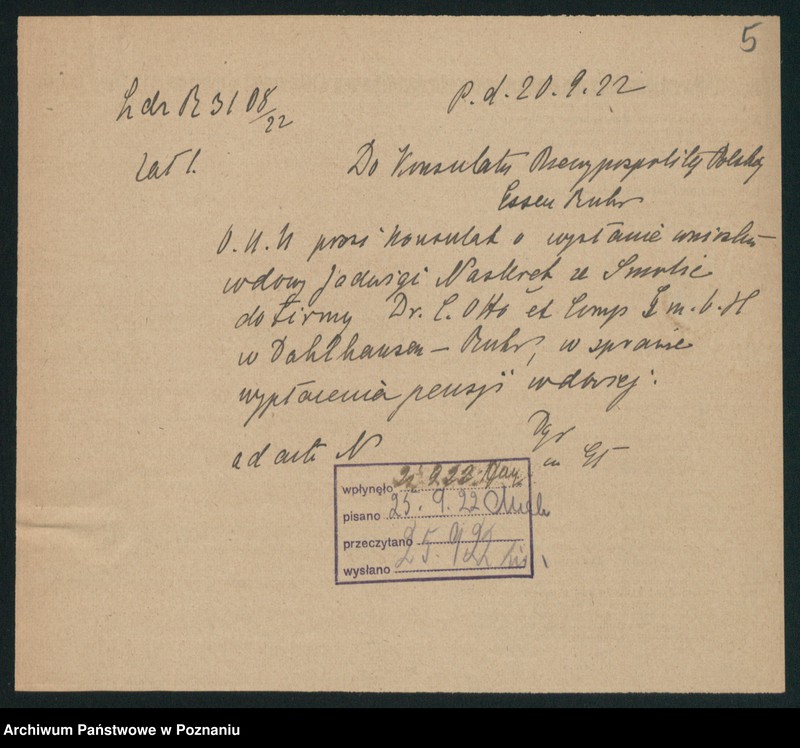 5
L dz R 3108/22
P. d. 20.9.22
zał 1.
Do Konsulatu Rzeczypospolitej Polskiej
Essen Ruhr
O. U. U prosi Konsulat o wysłanie wniosku
wdowy Jadwigi Naskręt ze Smolic
do firmy Dr. C. Otto et Comp G m. b. H
w Dahlhausen - Ruhr, w sprawie
wypłacenia pensji wdowiej.
ad acta N
Dyr
wpłynęło 9 22
pisano 25. 9. 22
przeczytano
wysłano 25. 9 22
Archiwum Państwowe w Poznaniu